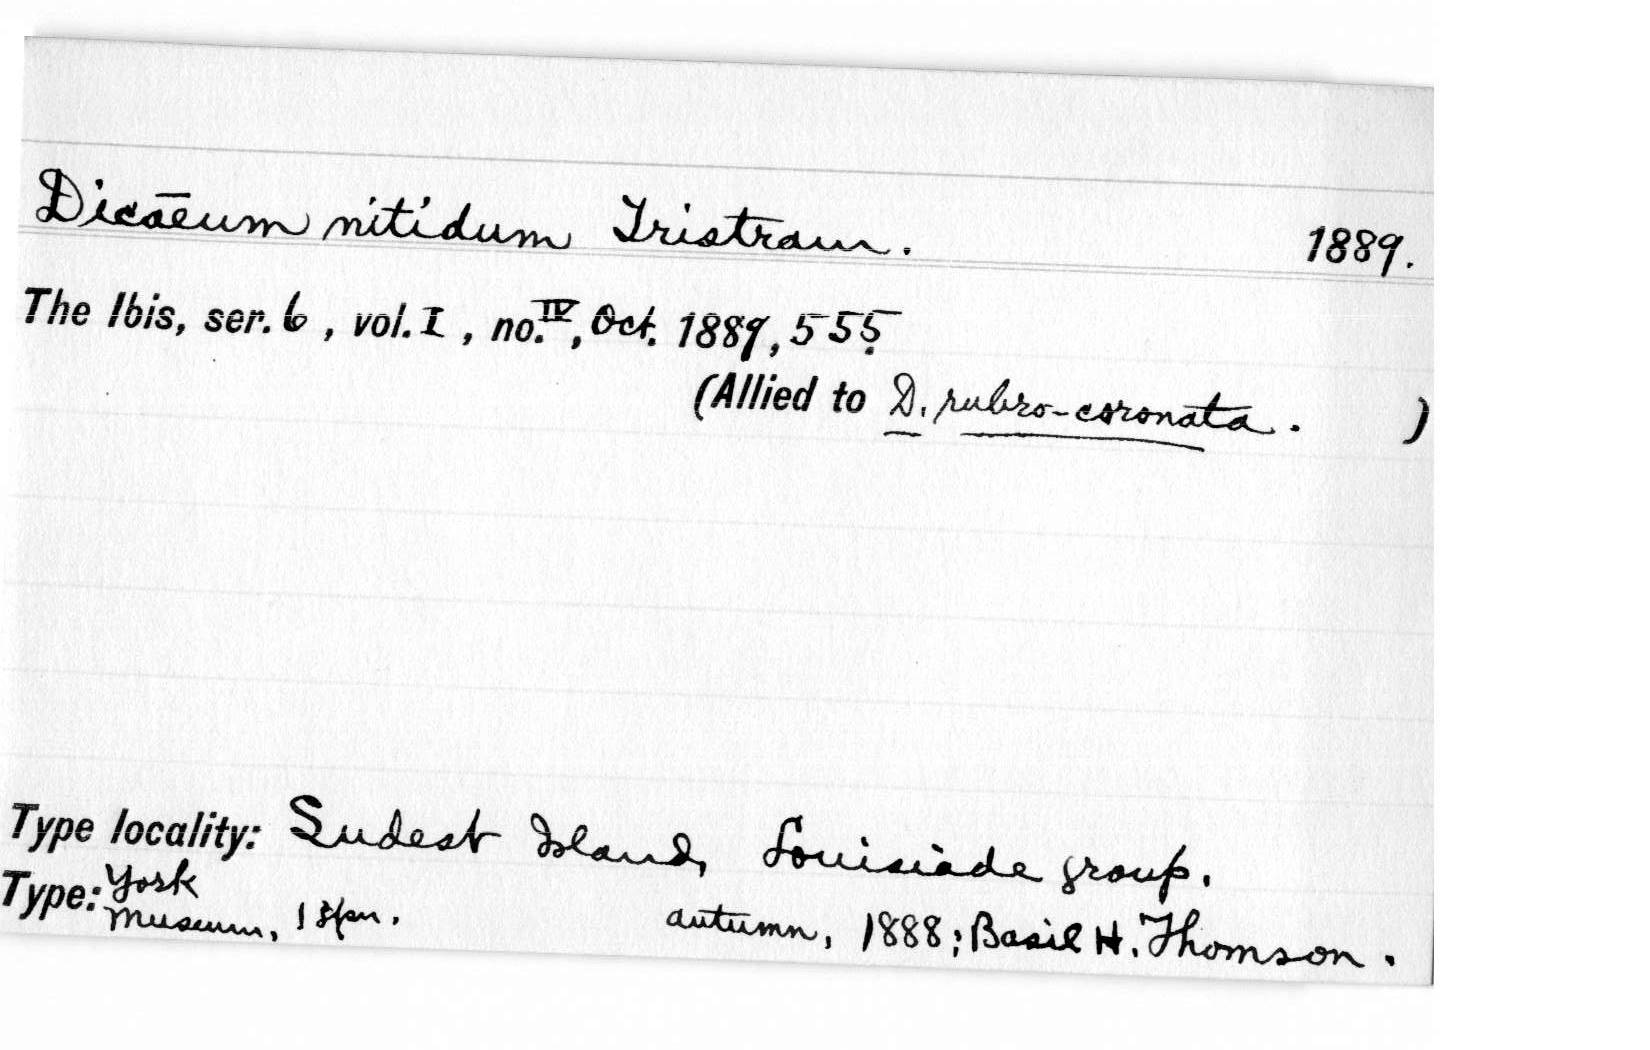 Dicaēum nitidum Tristram. 1889.
The Ibis, ser. 6, vol. I, no. IV, Oct. 1889, 555.
(Allied to D. rubro-coronata. )
Type locality: Sudest Island, Louisiade group.
Type: York
Museum, 1 spn. autumn, 1888; Basil H. Thomson.